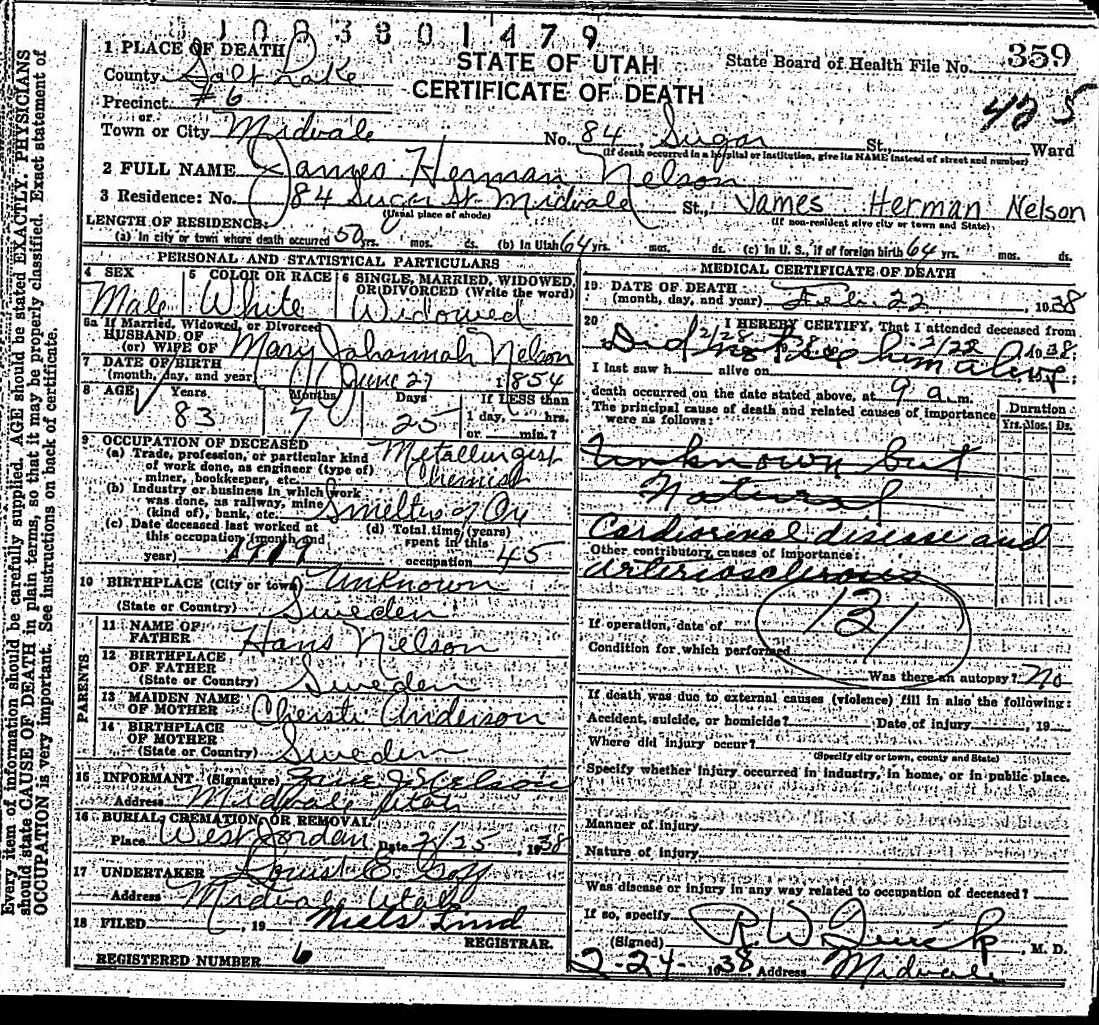 1003801479
1 PLACE OF DEATH
STATE OF UTAH
State Board of Health File No. 359
County Salt Lake
CERTIFICATE OF DEATH
425
Precinct #6
or
Town or City Midvale No. 84 Sugar St., Ward
(If death occurred in a hospital or institution, give its NAME instead of street and number)
2 FULL NAME James Herman Nelson
3 Residence: No. 84 Sugar St. Midvale St., James Herman Nelson
(Usual place of abode) (If non-resident give city or town and State)
LENGTH OF RESIDENCE:
(a) In city or town where death occurred 50 yrs. mos. ds. (b) In Utah 64 yrs. mos. ds. (c) In U. S., if of foreign birth 64 yrs. mos. ds.
PERSONAL AND STATISTICAL PARTICULARS
4 SEX 5 COLOR OR RACE 6 SINGLE, MARRIED, WIDOWED, OR DIVORCED (Write the word)
Male White Widowed
5a If Married, Widowed, or Divorced
HUSBAND OF
(or) WIFE OF Mary Johannah Nelson
7 DATE OF BIRTH
(month, day, and year) June 27 1854
8 AGE Years Months Days If LESS than
1 day, hrs.
83 7 25 or min.?
9 OCCUPATION OF DECEASED
(a) Trade, profession, or particular kind of work done, as engineer (type of) miner, bookkeeper, etc. Metallurgist Chemist
(b) Industry or business in which work was done, as railway, mine (kind of), bank, etc. Smelting Ore
(c) Date deceased last worked at this occupation (month and year) 1919
(d) Total time (years) spent in this occupation 45
10 BIRTHPLACE (City or town) Unknown
(State or Country) Sweden
PARENTS
11 NAME OF FATHER Hans Nelson
12 BIRTHPLACE OF FATHER
(State or Country) Sweden
13 MAIDEN NAME OF MOTHER Christi Anderson
14 BIRTHPLACE OF MOTHER
(State or Country) Sweden
15 INFORMANT (Signature) J Nelson
Address Midvale Utah
16 BURIAL, CREMATION, OR REMOVAL
Place West Jordan Date 2/25, 1938
17 UNDERTAKER Louis E Goff
Address Midvale Utah
18 FILED , 19 Niels Lind
REGISTRAR.
REGISTERED NUMBER 6
MEDICAL CERTIFICATE OF DEATH
19 DATE OF DEATH
(month, day, and year) Feb. 22, 1938
20 I HEREBY CERTIFY, That I attended deceased from
Did not see him alive 1938
I last saw h alive on
death occurred on the date stated above, at 9 a.m.
The principal cause of death and related causes of importance were as follows:
Duration
Yrs. Mos. Ds.
Unknown but
Natural
Cardiorenal disease and
Other contributory causes of importance:
arteriosclerosis
131
If operation, date of
Condition for which performed
Was there an autopsy? No
If death was due to external causes (violence) fill in also the following:
Accident, suicide, or homicide? Date of injury , 19
Where did injury occur?
(Specify city or town, county and State)
Specify whether injury occurred in industry, in home, or in public place.
Manner of injury
Nature of injury
Was disease or injury in any way related to occupation of deceased?
If so, specify
(Signed) R W , M. D.
2-24- 1938 Address Midvale
Every item of information should be carefully supplied. AGE should be stated EXACTLY. PHYSICIANS
should state CAUSE OF DEATH in plain terms, so that it may be properly classified. Exact statement of
OCCUPATION is very important. See instructions on back of certificate.